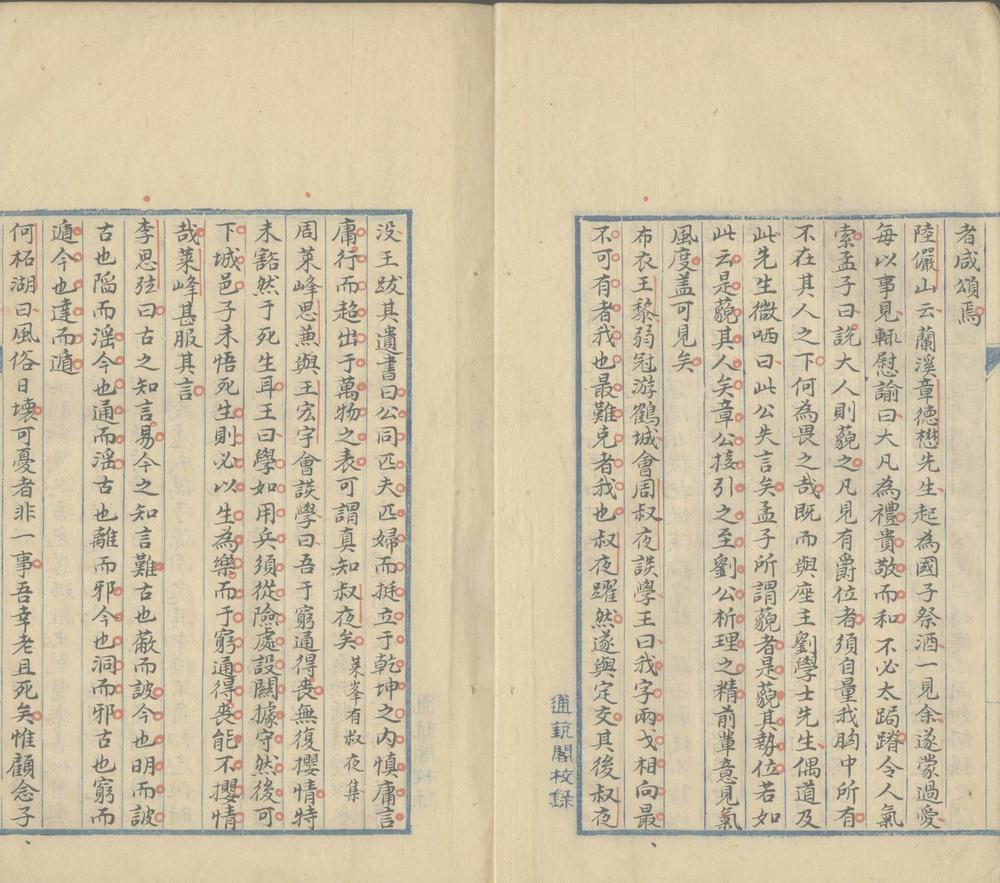 者咸頌焉
陸儼山云蘭溪章德懋先生起為國子祭酒一見余遂蒙過愛
每以事見輒慰諭曰大凡為禮貴敬而和不必太跼蹐令人氣
索孟子曰說大人則藐之凡見有爵位者須自量我胸中所有
不在其人之下何為畏之哉既而與座主劉學士先生偶道及
此先生微哂曰此公失言矣孟子所謂藐者是藐其勢位若如
此云是藐其人矣章公接引之至劉公析理之精前輩意見氣
風度蓋可見矣
布衣王黎弱冠游鶴城會周叔夜談學王曰我字兩戈相向最
不可有者我也最難克者我也叔夜躍然遂與定交其後叔夜
逋萟閣校錄
没王跋其遺書曰公同匹夫匹婦而挺立于乾坤之内慎庸言
庸行而超出于萬物之表可謂真知叔夜矣 萊峯有叔夜集
周萊峰思兼與王宏宇會談學曰吾于窮通得喪無復攖情特
未豁然于死生耳王曰學如用兵須從險處設關據守然後可
下城邑子未悟死生則必以生為樂而于窮通得喪能不攖情
哉萊峰甚服其言
李思弦曰古之知言易今之知言難古也蔽而詖今也明而詖
古也陷而淫今也通而淫古也離而邪今也洞而邪古也窮而
遁今也達而遁
何柘湖曰風俗日壞可憂者非一事吾幸老且死矣惟顧念子